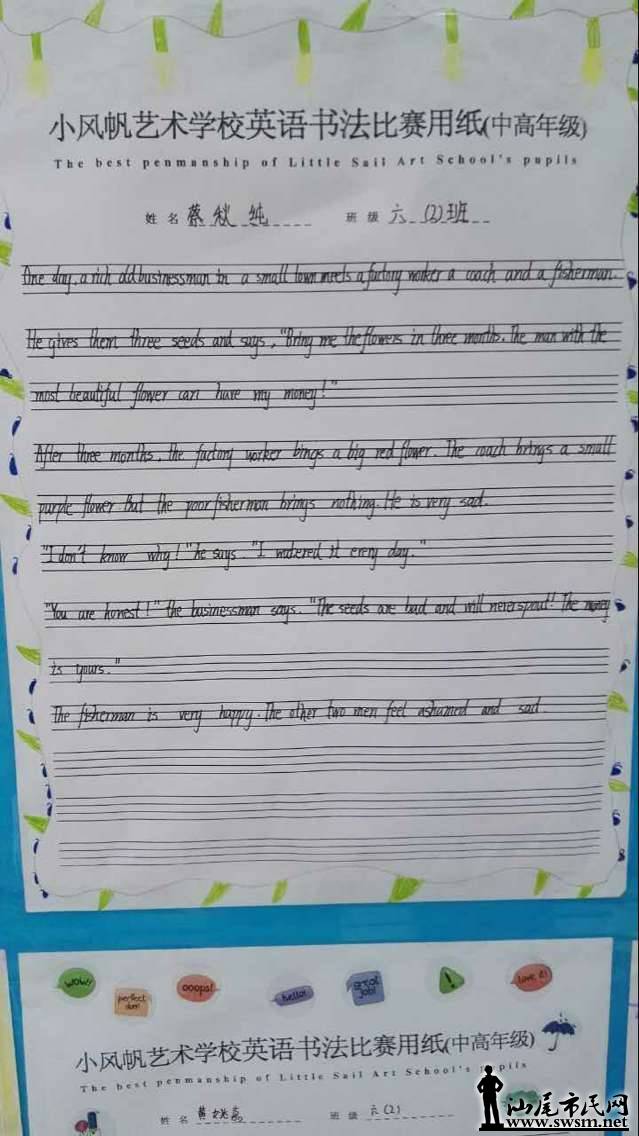 小风帆艺术学校英语书法比赛用纸(中高年级)
The best penmanship of Little Sail Art School's pupils
姓名 蔡秋纯 班级 六(2)班
One day, a rich old businessman in a small town meets a factory worker a coach and a fisherman.
He gives them three seeds and says, "Bring me the flowers in three months. The man with the
most beautiful flower can have my money!"
After three months, the factory worker bings a big red flower. The coach brings a small
purple flower. But the poor fisherman brings nothing. He is very sad.
"I don't know why!" he says. "I watered it every day."
"You are honest!" the businessman says. "The seeds are bad and will never sprout! The money
is yours."
The fisherman is very happy. The other two men feel ashamed and sad.
wow! perfect ooops! hello! great job! ! love it!
小风帆艺术学校英语书法比赛用纸(中高年级)
The best penmanship of Little Sail Art School's pupils
姓名 黄 班级 六(2)
汕尾市民网
www.swsm.net